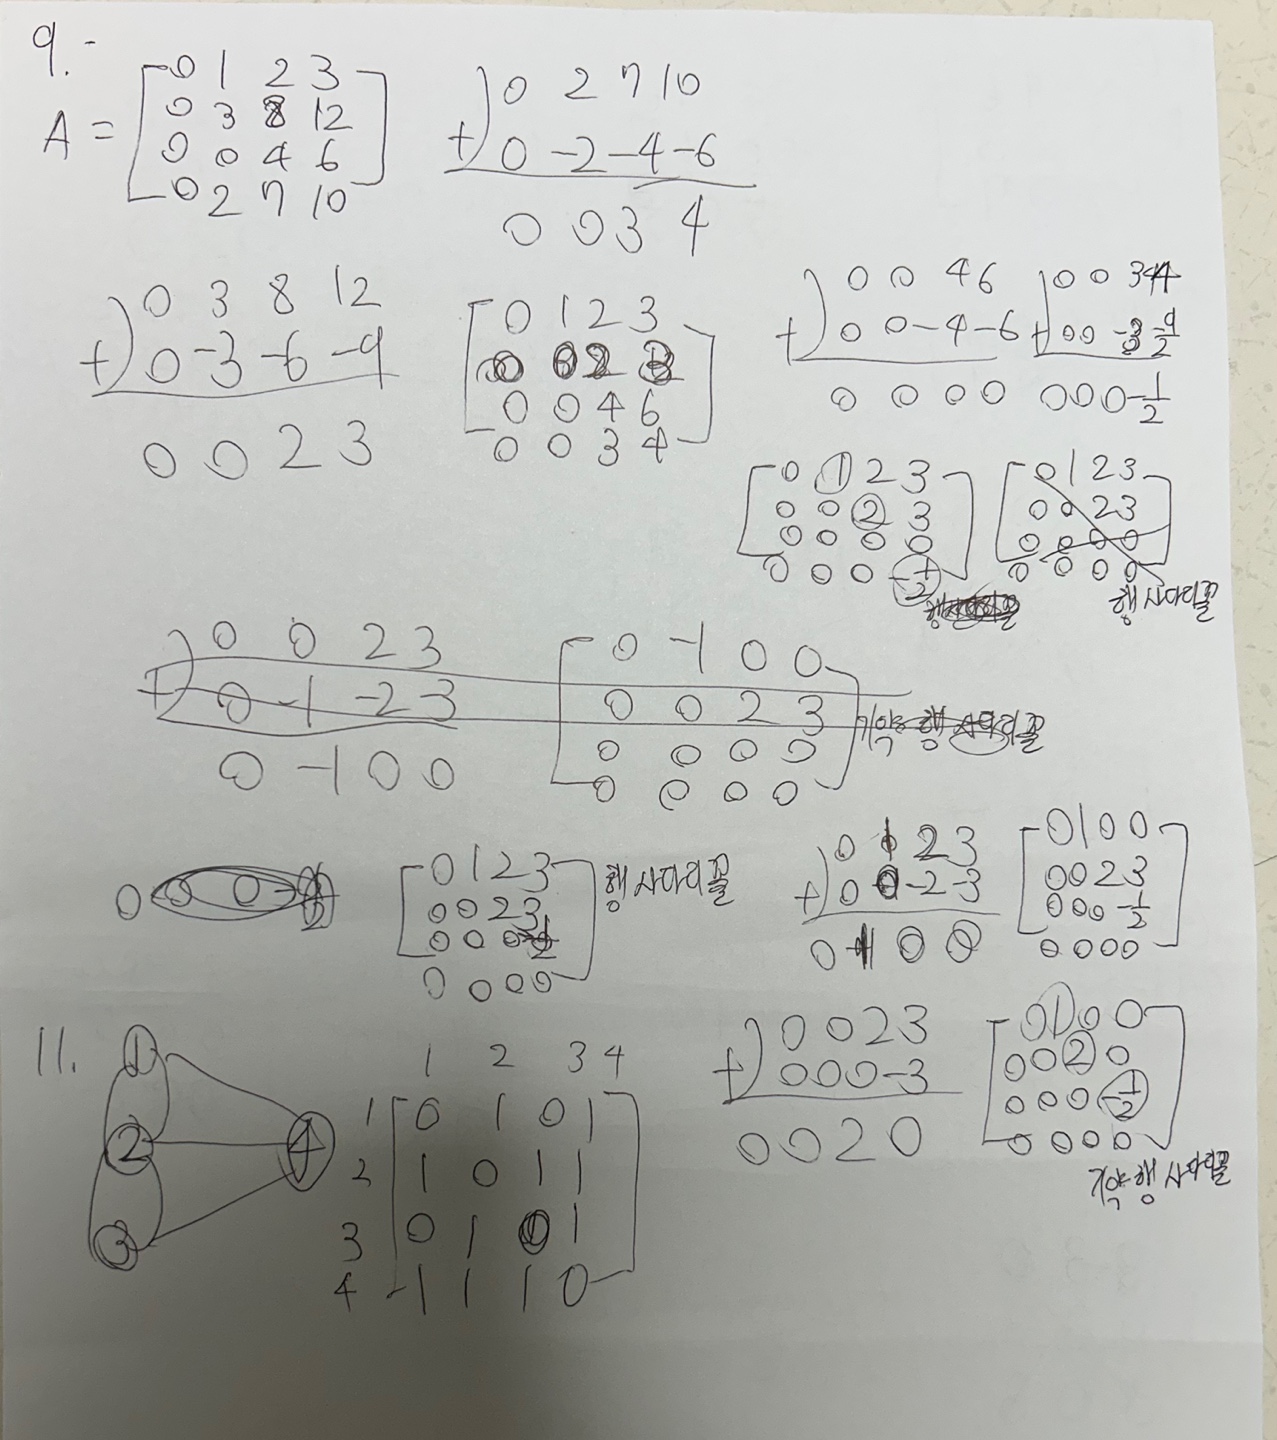 9.
A = [0 1 2 3
0 3 8 12
0 0 4 6
0 2 7 10]
0 2 7 10
+) 0 -2 -4 -6
0 0 3 4
0 3 8 12
+) 0 -3 -6 -9
0 0 2 3
[0 1 2 3
0 0 4 6
0 0 3 4]
0 0 4 6
+) 0 0 -4 -6
0 0 0 0
0 0 3 4
+) 0 0 -3 -9/2
0 0 0 -1/2
[0 1 2 3
0 0 2 3
0 0 0 0
0 0 0 -1/2]
[0 1 2 3
0 0 2 3
0 0 0 0
0 0 0 0]
행 사다리꼴
0 0 2 3
+) 0 -1 -2 -3
0 -1 0 0
[0 -1 0 0
0 0 2 3
0 0 0 0
0 0 0 0]
기약 행 사다리꼴
[0 1 2 3
0 0 2 3
0 0 0 -1/2
0 0 0 0]
행 사다리꼴
0 1 2 3
+) 0 0 -2 -3
0 1 0 0
[0 1 0 0
0 0 2 3
0 0 0 -1/2
0 0 0 0]
0 0 2 3
+) 0 0 0 -3
0 0 2 0
[0 1 0 0
0 0 2 0
0 0 0 -1/2
0 0 0 0]
기약 행 사다리꼴
11.
1
2
3
4
1 2 3 4
1 [0 1 0 1
2 1 0 1 1
3 0 1 0 1
4 1 1 1 0]